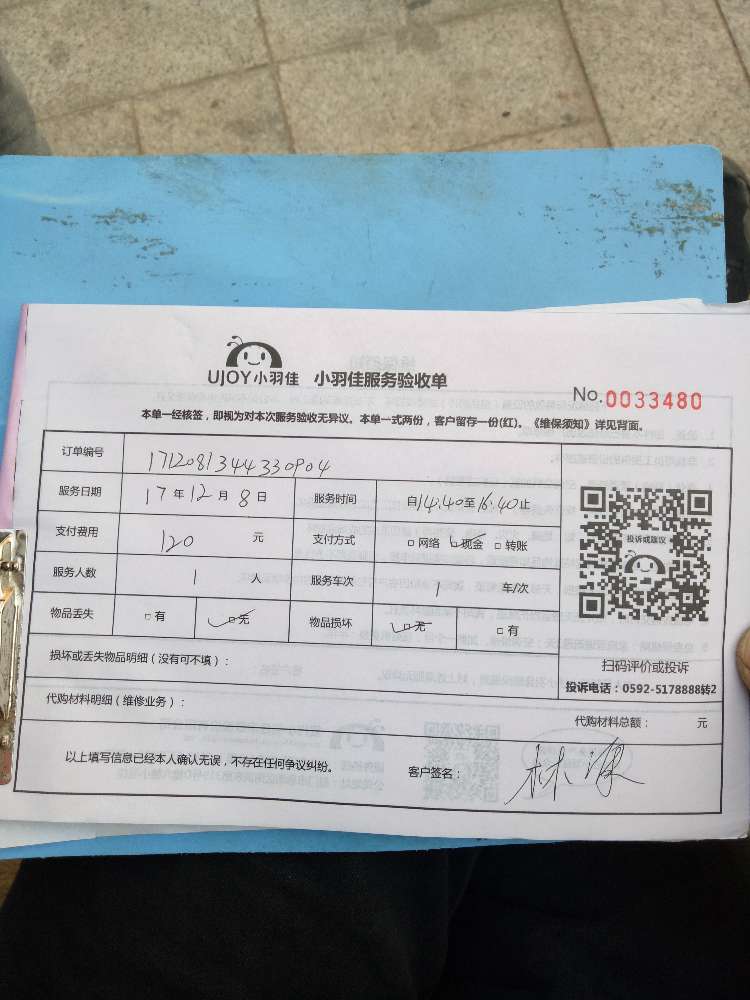 UJOY小羽佳 小羽佳服务验收单
No.0033480
本单一经核签，即视为对本次服务验收无异议。本单一式两份，客户留存一份(红)。《维保须知》详见背面。
订单编号 1712081344330904
服务日期 17年12月8日 服务时间 自14:40至16:40止
支付费用 120 元 支付方式 □网络 □现金 □转账
投诉或建议
服务人数 1 人 服务车次 1 车/次
物品丢失 □有 □无 物品损坏 □无 □有
扫码评价或投诉
损坏或丢失物品明细（没有可不填）：
投诉电话：0592-5178888转2
代购材料明细（维修业务）：
代购材料总额： 元
以上填写信息已经本人确认无误，不存在任何争议纠纷。 客户签名： 林